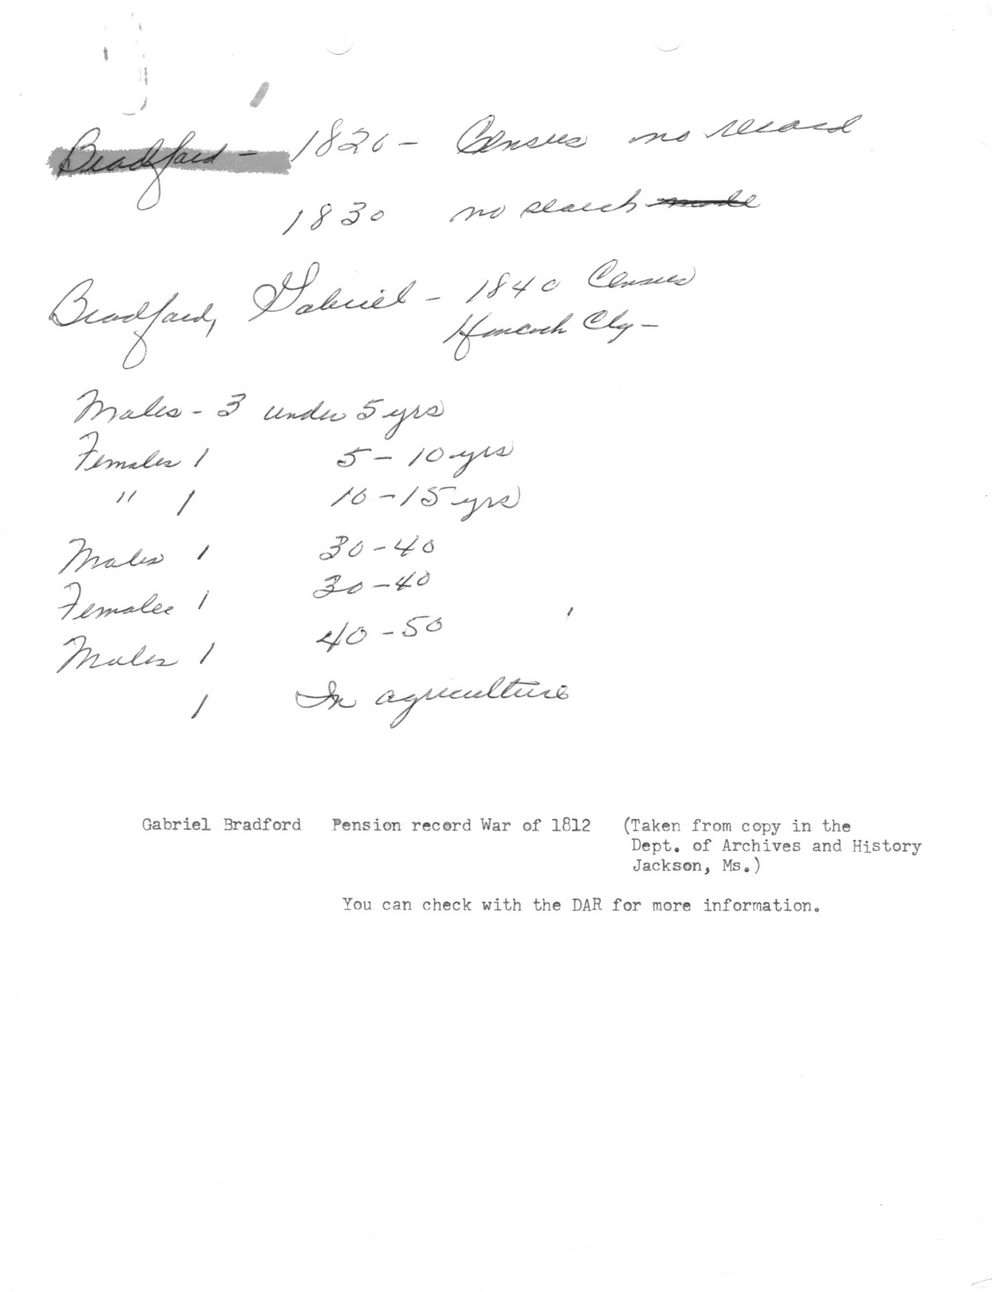 Bradford - 1820 - Census no record
1830 no search made
Bradford, Gabriel - 1840 Census
Hancock Cty -
Males - 3 under 5 yrs
Females 1 5 - 10 yrs
" 1 10 - 15 yrs
Males 1 30 - 40
Females 1 30 - 40
Males 1 40 - 50
1 In agriculture
Gabriel Bradford Pension record War of 1812 (Taken from copy in the
Dept. of Archives and History
Jackson, Ms.)
You can check with the DAR for more information.